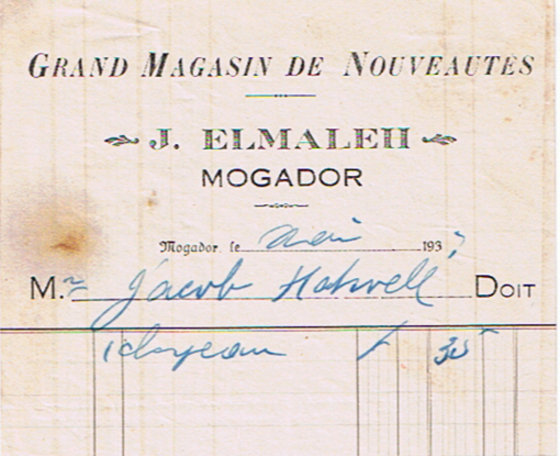 GRAND MAGASIN DE NOUVEAUTÉS
J. ELMALEH
MOGADOR
Mogador, le Mai 193
M.r Jacob Hatwell DOIT
1 chapeau 35